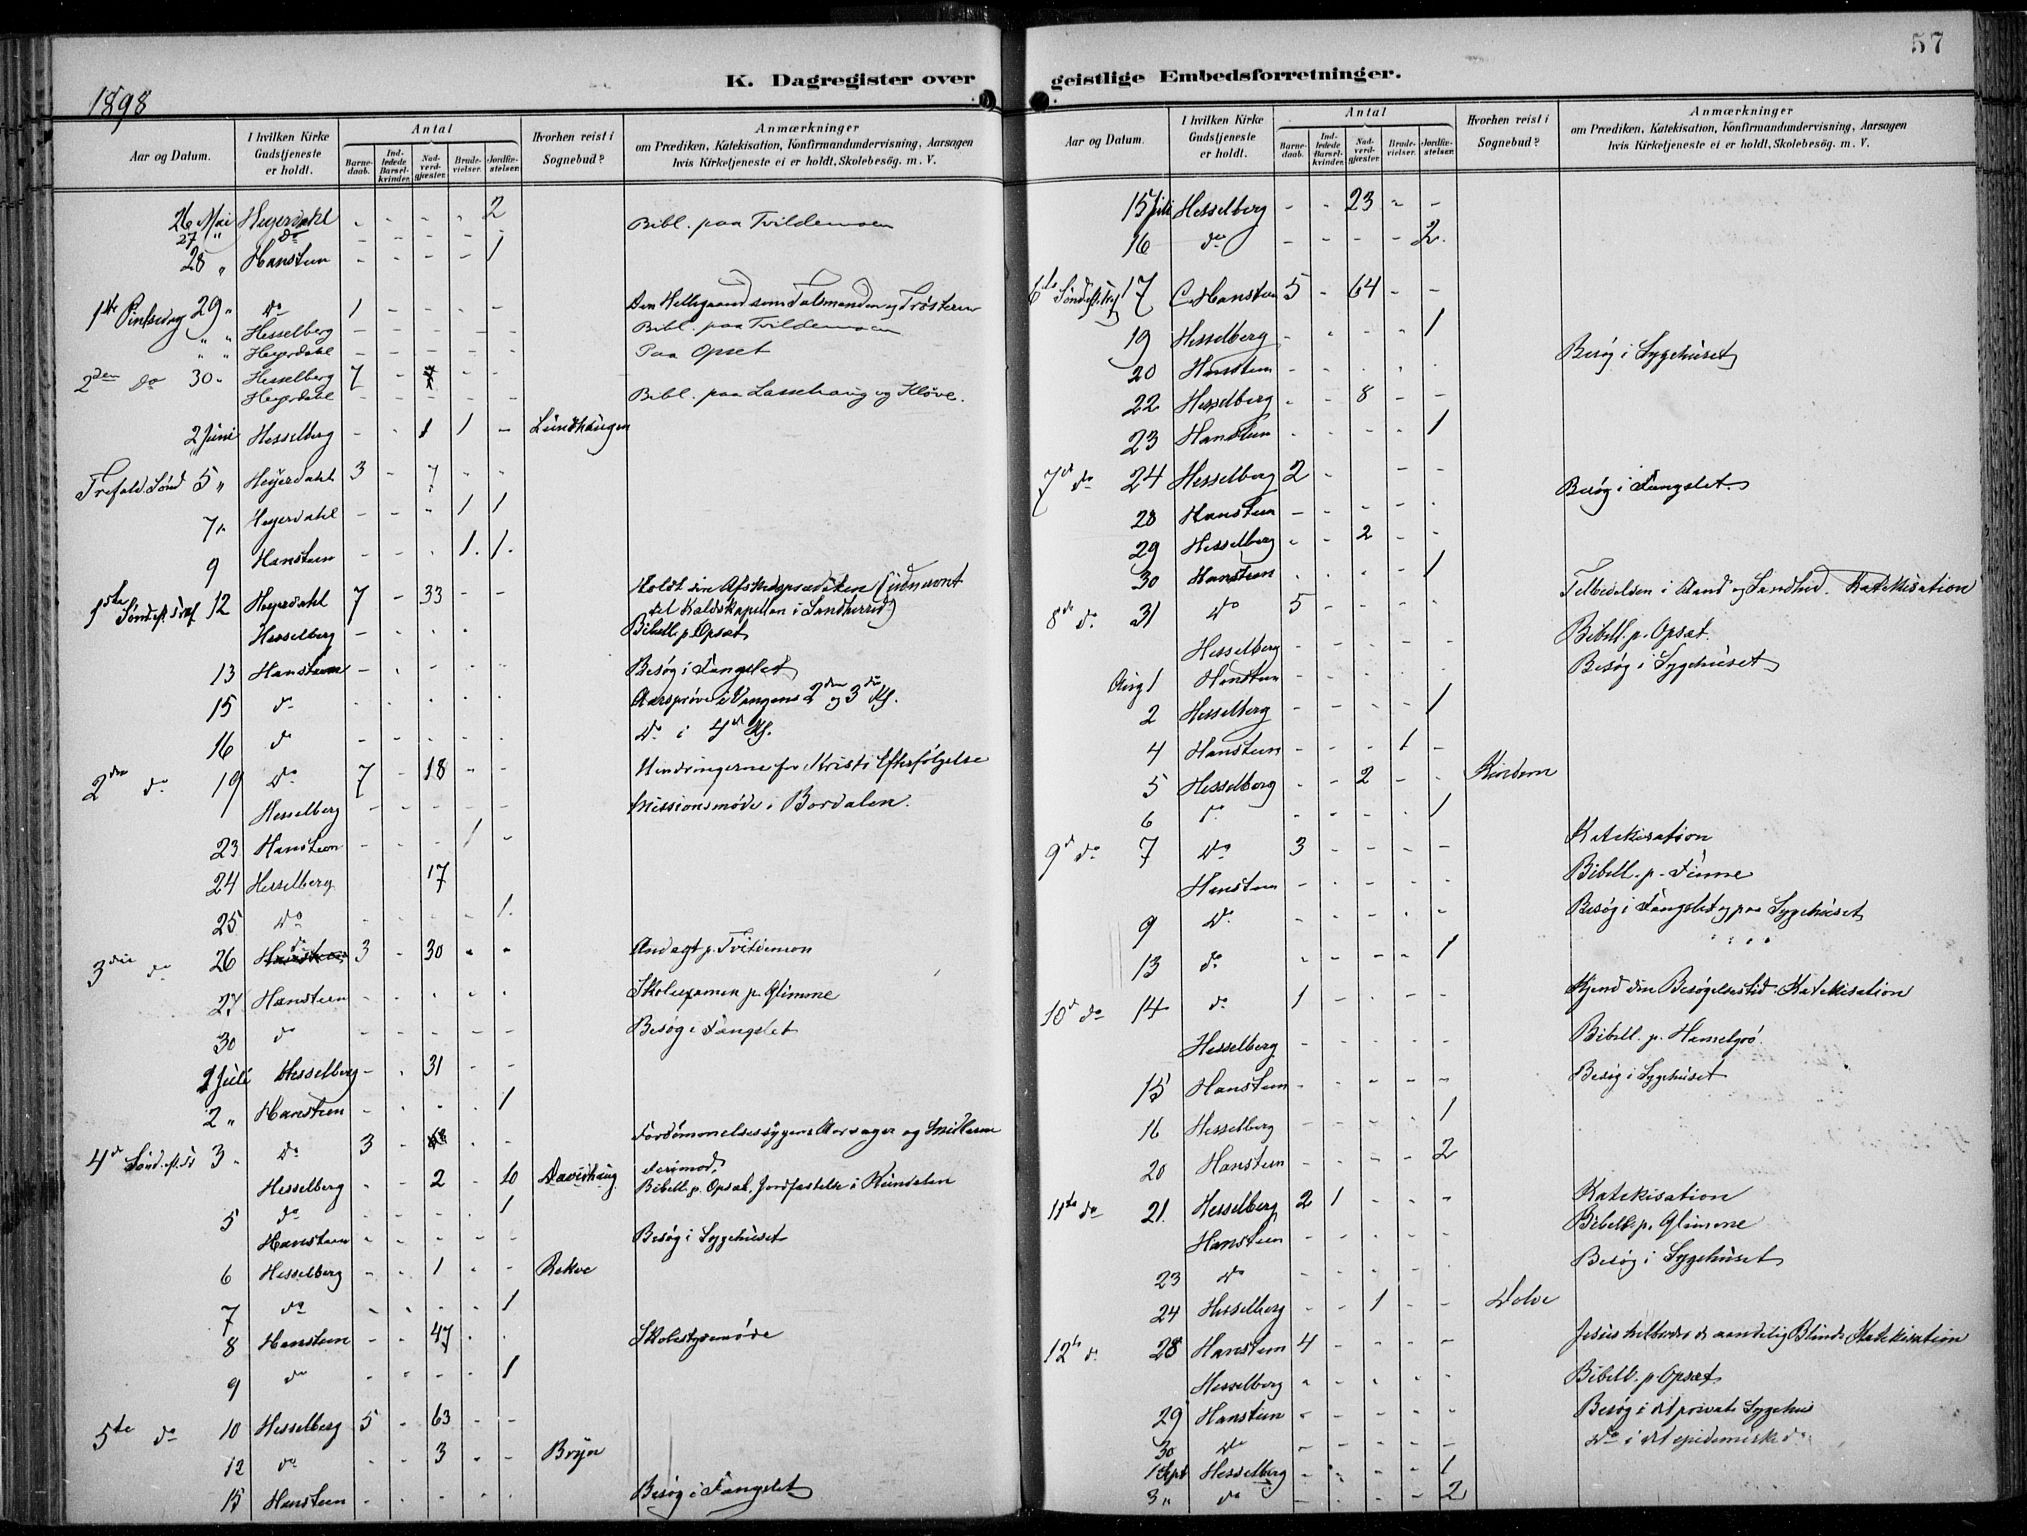 57
K. Dagregister over geistlige Embedsforretninger.
1898
Aar og Datum.
I hvilken Kirke Gudstjeneste er holdt.
Antal
Barnedaab.
Indledede Barselkvinder.
Nadverdgjæster.
Brudevielser.
Jordfæstelser.
Hvorhen reist i Sognebud?
Anmærkninger
om Prædiken, Katekisation, Konfirmandundervisning, Aarsagen
hvis Kirketjeneste ei er holdt, Skolebesøg. m. V.
26 Mai Heyerdahl - - - - 2
27 " do - - - - - Bibl. paa Tvildemoen
28 " Hansteen - - - - 1
1ste Pintsedag 29 " do 1 - - - - Den Helligaand som Talsmanden og Trøsteren
" " Hesselberg - - - - - Bibl. paa Tvildemoen
" " Heyerdahl - - - - - Paa Opset
2den do 30 " Hesselberg 7 - - -
Heyerdahl - - - - - Bibl. paa Lassehaug og Kløve.
2 Juni Hesselberg - - 1 1 - Lundhaugen
Trefold. Sønd 5 " Heyerdahl 3 - 7 - -
7 " Heyerdahl - - - 1 1
9 Hansteen - - - 1. 1.
1ste Sønd. ef. Tref 12 Heyerdahl 7 - 33 - - Holdt sin Afskedsprædiken (udnævnt
til Kaldskapellan i Sandherred)
Hesselberg - - - - Bibell. p. Opsæt
13 Hansteen - - - - - Besøg i Fængslet
15 do - - - - - Aarsprøve i Vangens 2den og 3die Kl.
16 do - - - - - Do i 4de Kl.
2den do 19 Do 7 - 18 - - Hindringerne for Kristi Efterfølgelse
Hesselberg - - - - - Missionsmøde i Bordalen.
23 Hansteen - - - 1 -
24 Hesselberg 17
25 Do - - - - 1.
3die do 26 do 3 - 30 - - Andagt p. Tvildemoen
27 Hansteen - - - - - Skoleexamen p. Glimme
30 do - - - - - Besøg i Fængslet
1 Juli Hesselberg - - 31 - -
2 " Hansteen - - - - 1
4de Sønd. ef. Tr 3 " Do 3 - - - Fordømmelsessygens Aarsager og Midlerne
derimod.
Hesselberg - - 2 - 10 Davidhaug Bibell. p. Opsæt, Jordfæstelse i Kundalen
5 do - - - - 1
Hansteen - - - - - Besøg i Sygehuset
6 Hesselberg - - 1 - - Rekve
7 do - - - - 1
8 Hansteen - - 47 - - Skolestyremøde
9 do - - - - 1
5te do 10 Hesselberg 5 - 63 - -
12 do - - 3 - - Bryn
15 Hansteen - - - - - Besøg i Fængslet
Aar og Datum.
I hvilken Kirke Gudstjeneste er holdt.
Antal
Barnedaab.
Indledede Barselkvinder.
Nadverdgjæster.
Brudevielser.
Jordfæstelser.
Hvorhen reist i Sognebud?
Anmærkninger
om Prædiken, Katekisation, Konfirmandundervisning, Aarsagen
hvis Kirketjeneste ei er holdt, Skolebesøg. m. V.
15 Juli Hesselberg - - 23 - -
16 do - - - - 2.
6te Sønd. ef. Tref 17 C. Hansteen 5 - 64 - -
19 Hesselberg - - - - 1
20 Hansteen - - - - - Besøg i Sygehuset
22 Hesselberg - - 8 - -
23 Hansteen - - - - 1
7d do 24 Hesselberg 2 - - -
28 Hansteen - - - - - Besøg i Fængslet.
29 Hesselberg - - 2 - -
30 Hansteen - - - - 1
8de do 31 Do 5 - - - - Tilbedelsen i Aand og Sandhed. Katekisation
Hesselberg - - - - - Bibell. p. Opsæt.
Aug 1 Hansteen - - - - - Besøg i Sygehuset
2 Hesselberg - - - - 1
4 Hansteen - - - 1 -
5 Hesselberg - - 2 - -
6 do - - - - 1
9d do 7 Do 3 - - - - Katekisation
Hansteen - - - - - Bibell. p. Finne
9 Do - - - - - Besøg i Fængslet og paa Sygehuset
13 do - - - - 1 " " " "
10d do 14 do 1 - - - - Kjend din Besøgelsestid. Katekisation
Hesselberg - - - - - Bibell. p. Hamelgrø
15 Hansteen - - - - - Besøg i Sygehuset
16 Hesselberg - - - - 1
20 Hansteen - - - - 2
11te do 21. Hesselberg 2 1 - - - Katekisation
Hansteen - - - - - Bibell. p. Glimme
23 Do - - - - - Besøg i Sygehuset
24 Hesselberg - - 1 - - Dolve
12te do 28 Hansteen 4 - - - - Jesus helbreder de aandelig Blinde Katekisation
Hesselberg - - - - - Bibell. p. Opsæt
29 Hansteen - - - - - Besøg i det private Sygehus
30 Do - - - - - Do i det epidemiske do
1 Sept Hesselberg - - - - 1
3 " do - - - - 2